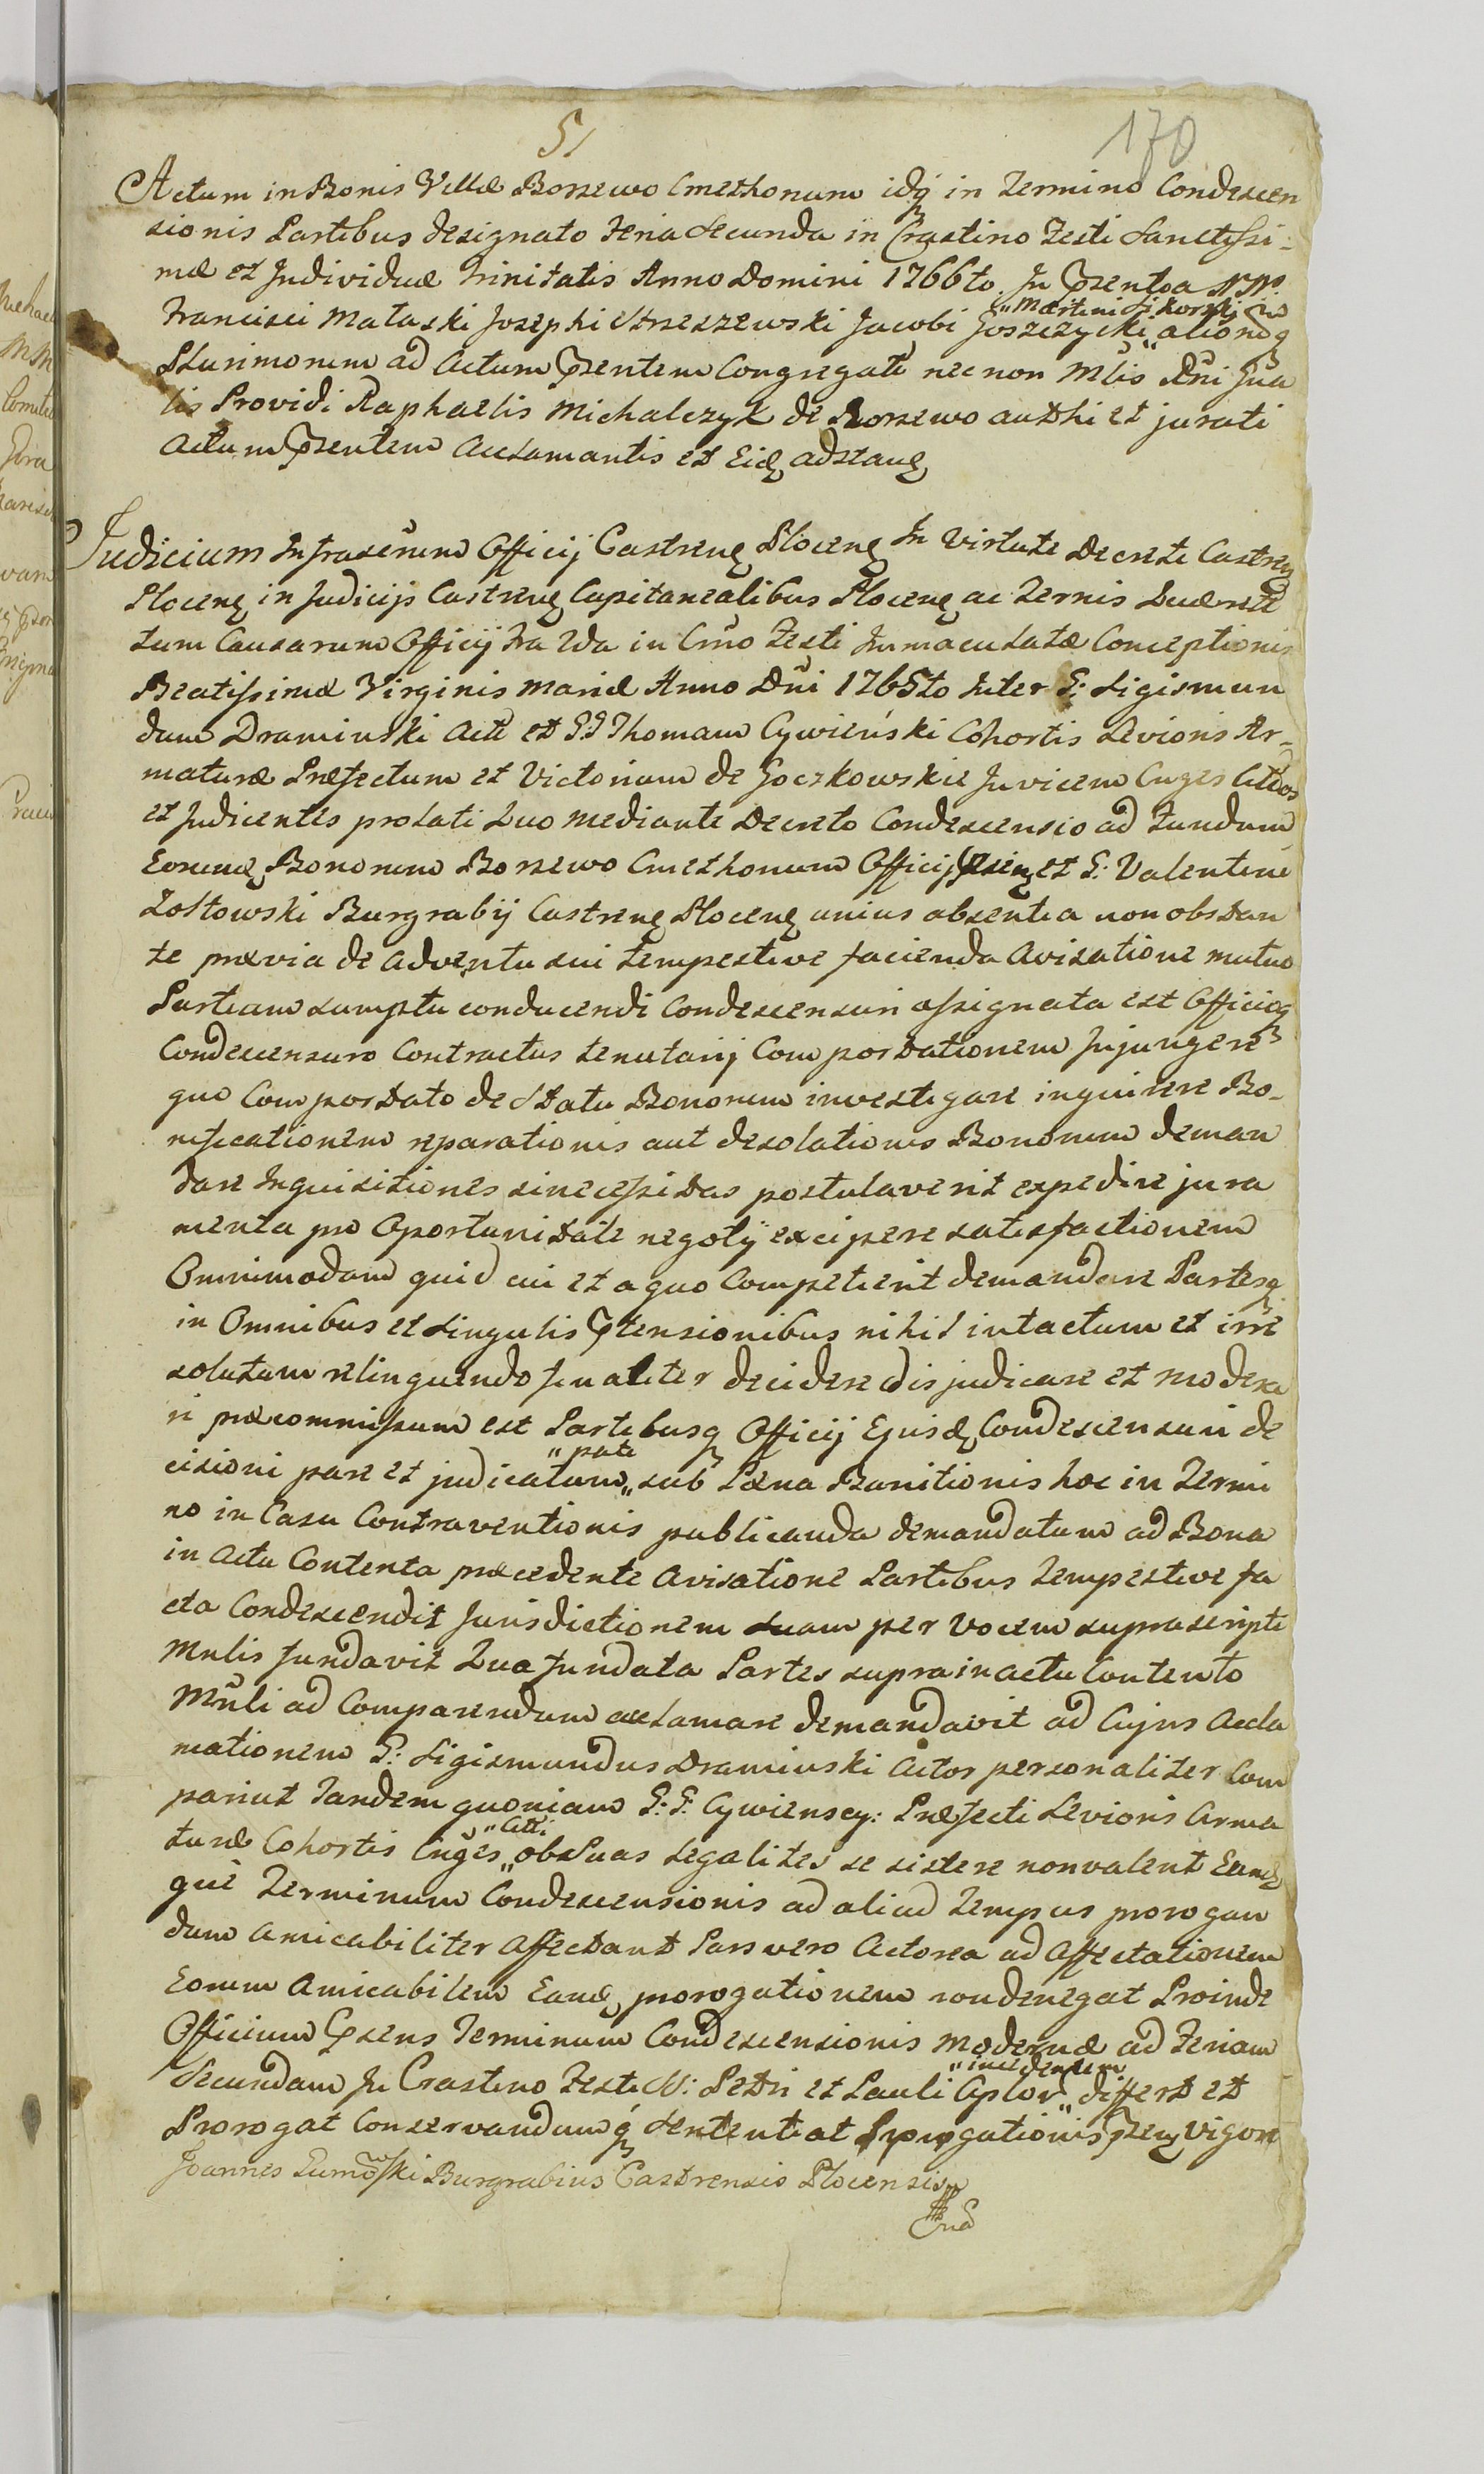 51
170
Actum in Bonis Villæ Borzewo Cmethonum idq in Termino Condescen
sionis Partibus designato Feria Secunda in Crastino Festi Sanctissi-
mæ et Individuæ Trinitatis Anno Domini 1766to. In Pñtia NN.
"Martini Sikorski
Francisci Mataski Josephi Strzeszewski Jacobi Goszczycki " alionq
Plurimorum ad Actum Pñtem Congregati nec non Mlis Dñi
lis Providi Raphaelis Michalczyk de Borzewo authi et jurati
Actum Pñtem Acclamantis et Eid adstanę
Judicium Infrascrum Officij Castrenę Plocenę In Virtute Decreti Castrenę
Plocenę in Judicijs Castrenę Capitanealibus Plocenę ac Ternis Quæreli
tum Causarum Officij Fra 2da in Crño Festi Immaculatæ Conceptionis
Beatissimæ Virginis Mariæ Anno Dñi 1765to Inter G: Sigismun
dum Draminski Actē et GG Thomam Cywiński Cohortis Levioris Ar-
maturæ Præfectum et Victoriam de Goczkowskie Invicem Cnges Cittos
et Judicentes prolati Quo mediante Decreto Condescensio ad Fundum
Eorumd Bonorum Borzewo Cmethonum Officij et G: Valentini
Zoltowski Burgrabij Castrenę Plocenę unius absentia non obstan
te prævia de adventu sui tempestive facienda Avisatione mutuo
Partium sumptu conducendi Condescensuri assignata est Officioq
Condescensuro Contractus tenutarij Comportationem Injungere
quo Comportato de Statu Bonorum investigare inquirere Bo-
nificationem reparationis aut desolationis Bonorum deman
dare Inquisitiones sinecessitas postulaverit expedire jura
menta pro Oportunitate negotÿ excipere satisfactionem
Omnimodam quid cui et a quo Competierit demandare Partesq
in Omnibus et Singulis Ptensionibus nihil intactum et irre
solutum relinquendo finaliter decidere dijudicare et modera
ri præcommissum est Partibusq Officij Ejusd Condescensuri de
"pati
cisioni pare et judicatum " sub Pæna Banitionis hoc in Termi
no in Casu Contraventionis publicanda demandatum ad Bona
in Actu Contenta præcedente Avisatione Partibus Tempestive fa
cta Condescendit Jurisdictionem Suam per Vocem suprascripti
Mnlis Fundavit Qua Fundata Partes supra in actu Contento
Mñli ad Comparendum acclamare demandavit ad Cujus Accla
mationem G: Sigismundus Draminski Actor personaliter Com
paruit Tandem quoniam G: G: Cywienscy: Præfecti Levioris Arma
"Citti
turæ Cohortis Cnges " ob Suas legalites se sistere nonvalent Eamd
que Terminum Condescensionis ad aliud Tempus prorogan
dum Amicabiliter Affectant Pars vero Actorea ad Affectationem
Eorum Amicabilem Eamd prorogationem nondenegat Proinde
Officium Pñsens Terminum Condescensionis modernæ ad Feriam
"incidentem
Secundam In Crastino Festi SS: Petri et Pauli Aplor " differt et
Prorogat Conservandumq Sententiat Prorogationis Pñtię Vigore
Joannes Burgrabius Castrensis Plocensis